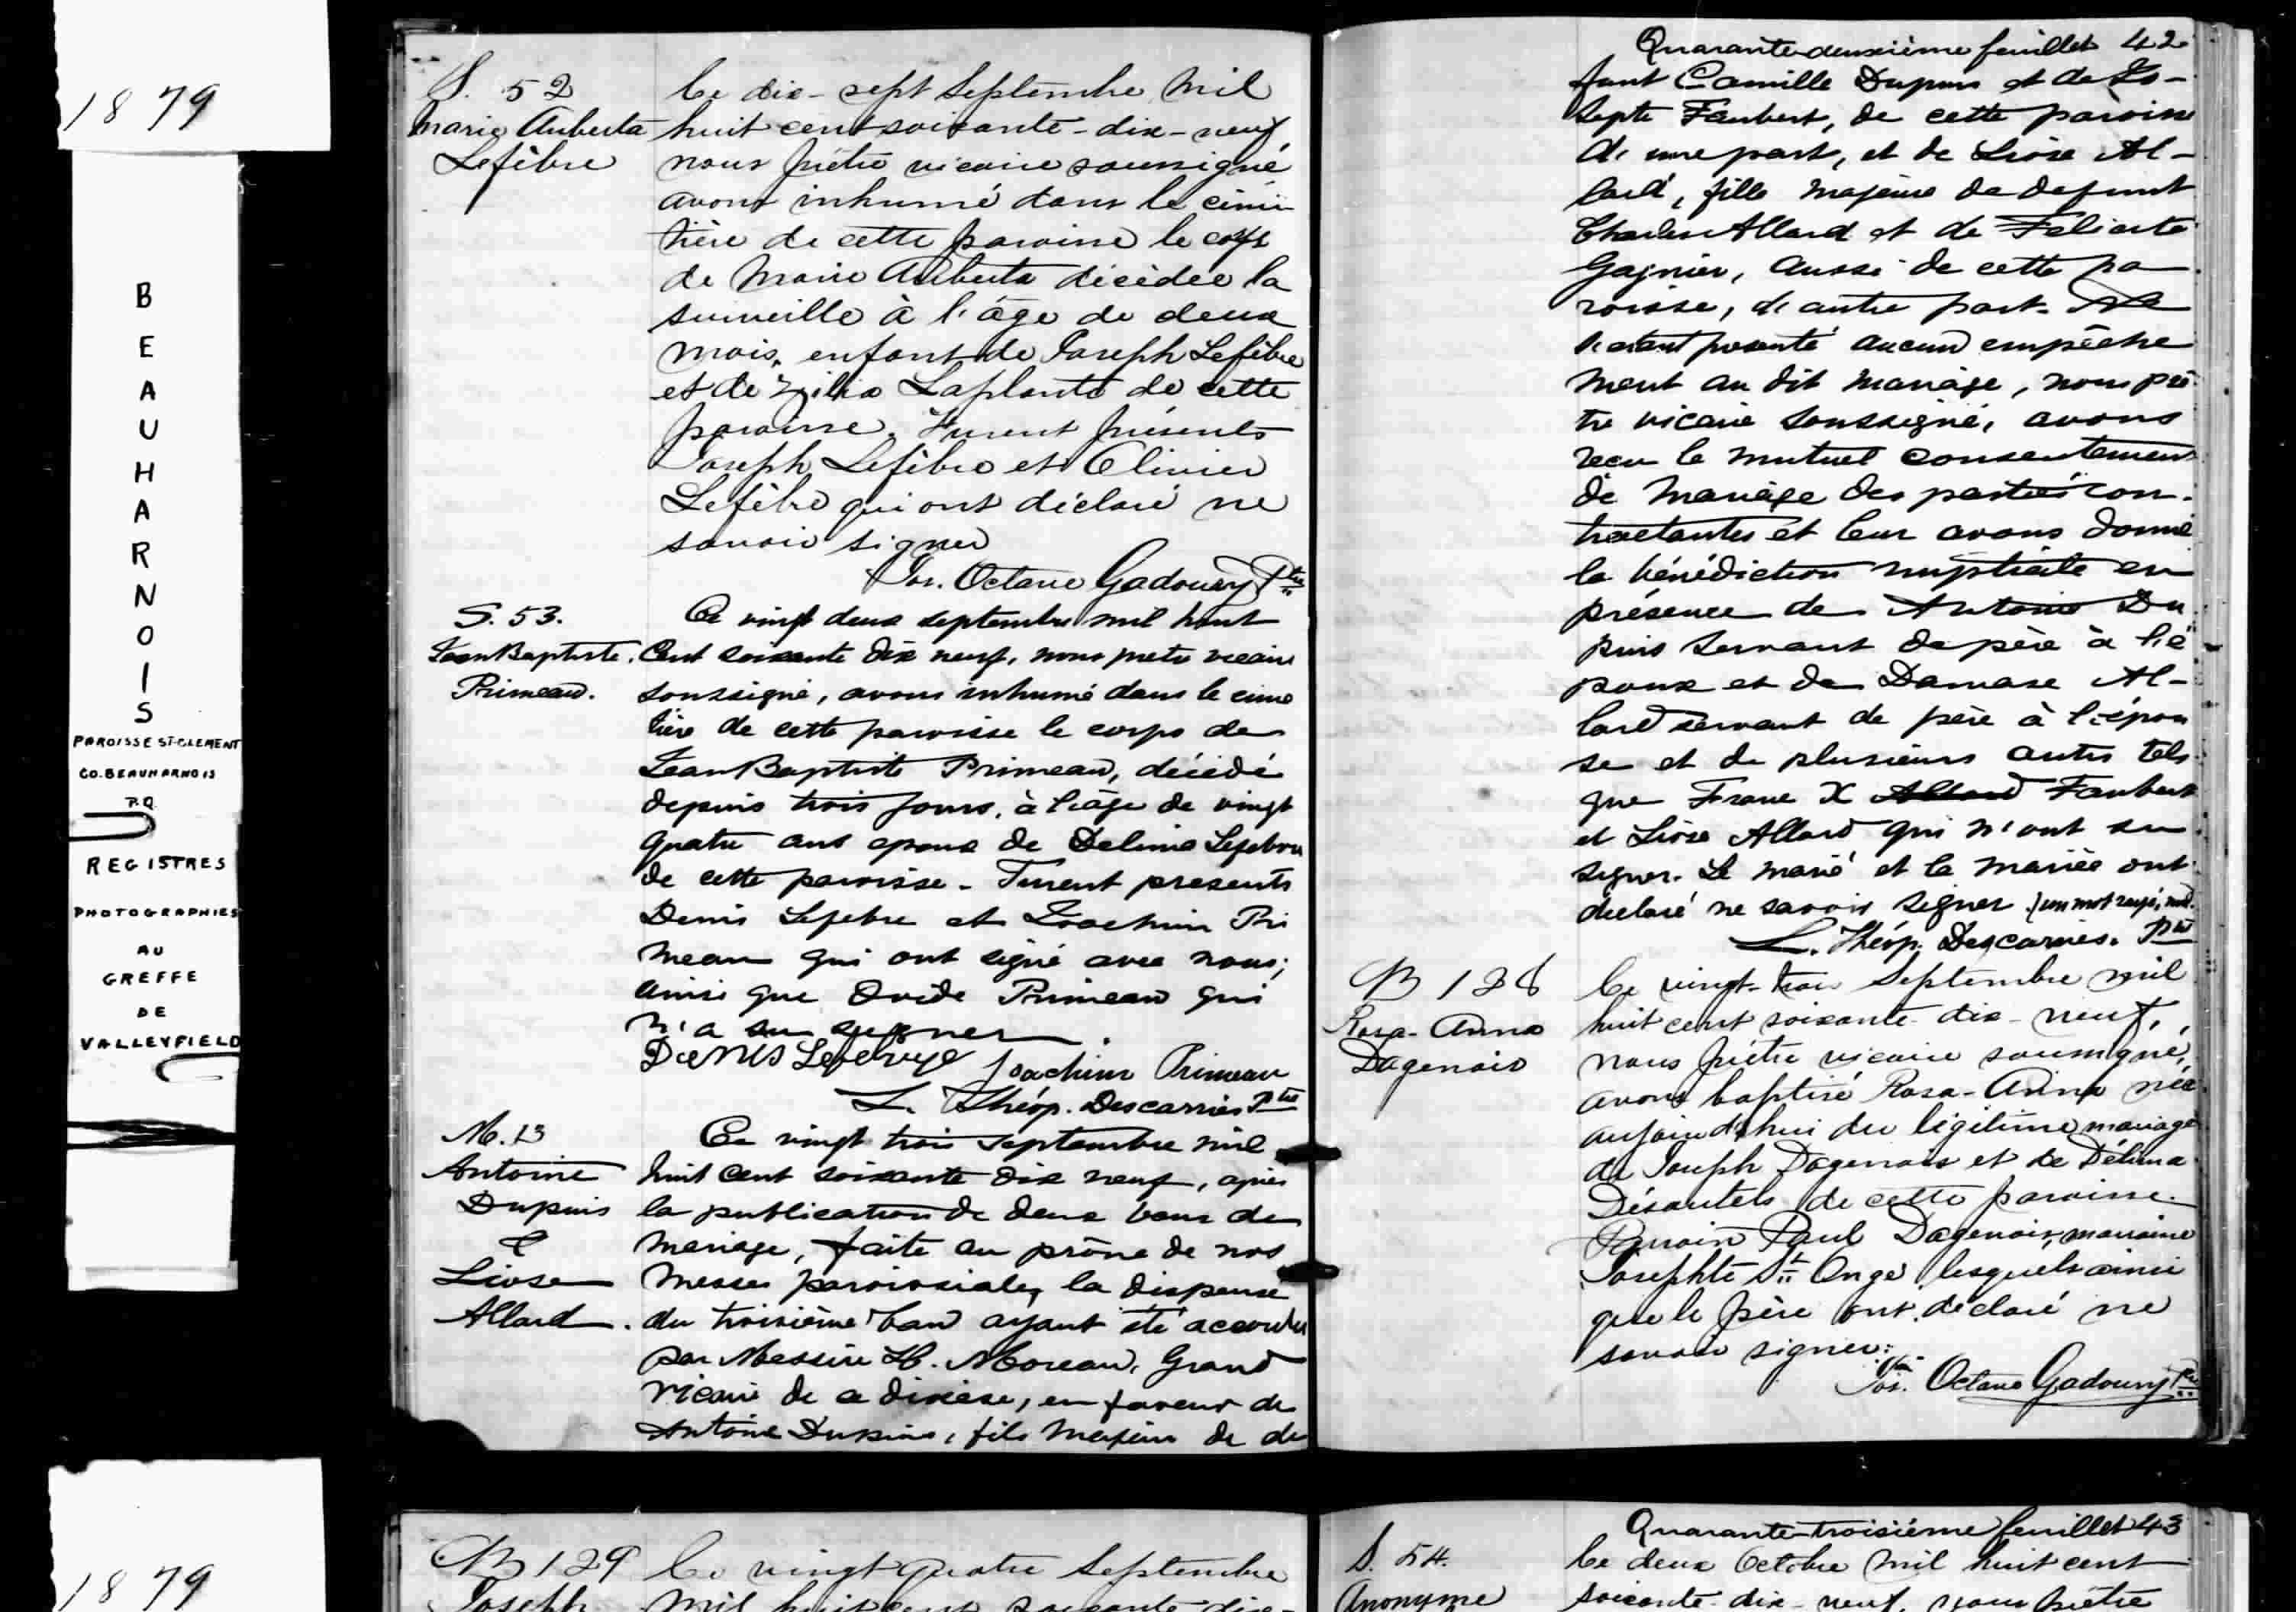 1879
BEAUHARNOIS
PAROISSE ST-CLEMENT
CO. BEAUHARNOIS
P.Q.
REGISTRES
PHOTOGRAPHIES
AU
GREFFE
DE
VALLEYFIELD
S. 52
Marie Auberta
Lefèbre
Ce dix-sept Septembre Mil
huit cent soixante-dix-neuf
nous prêtre vicaire soussigné
avons inhumé dans le cimi
tière de cette paroisse le corps
de Marie Auberta décédée la
surveille à l'âge de deux
mois, enfant de Joseph Lefèbre
et de Zilia Laplante de cette
paroisse. Furent présents
Joseph Lefèbre et Olivier
Lefèbre qui ont déclaré ne
savoir signer
Jos. Octave Gadoury Ptre
S. 53.
Jean Baptiste
Primeau.
Ce vingt deux septembre mil huit
Cent soixante dix neuf, nous pretre vicaire
soussigné, avons inhumé dans le cime
tière de cette paroisse le corps de
Jean Baptiste Primeau, décédé
depuis trois jours, à l'âge de vingt
quatre ans epoux de Delima Lefebre
de cette paroisse - Furent presents
Denis Lefebre et Joachim Pri
meau qui ont signé avec nous;
ainsi que Ovide Primeau qui
n'a su signer.
Denis Lefebvre Joachim Primeau
L. Théop. Descarries Ptre
M. 13
Antoine
Dupuis
&
Liose
Allard.
Ce vingt trois septembre mil
huit cent soixante dix neuf, après
la publication de deux bans de
Mariage, faite au prône de nos
Messes paroissiales, la dispense
du troisième ban ayant été accordée
par Messire H. Moreau, Grand
Vicaire de ce diocèse, en faveur de
Antoine Dupuis, fils Majeur de de
Quarante-deuxième feuillet 42
funt Camille Dupuis et de Jo-
septe Faubert, de cette paroisse
d'une part, et de Liose Al-
lard, fille majeure de defunt
Charles Allard et de Felicité
Gagnier, aussi de cette pa
roisse, d'autre part. Ne
s'etant presenté aucun empêche
ment au dit mariage, nous prê
tre vicaire soussigné, avons
recu le mutuel consentement
de mariage des parties con-
tractantes et leur avons donné
la bénédiction nuptiale en
présence de Antoine Du
puis servant de père à l'é
poux et de Damase Al-
lard servant de père à l'épou
se et de plusieurs autres tels
que Franc X Allard Faubert
et Liose Allard qui n'ont su
signer. Le marié et la mariée ont
declaré ne savoir signer (un mot rayé, nul.
L. Théop. Descarries. Ptre
B 128
Rosa-Anna
Dagenais
Ce vingt-trois Septembre mil
huit cent soixante-dix-neuf,
nous prêtre vicaire soussigné,
avons baptisé Rosa-Anna née
aujourd'hui du légitime mariage
de Joseph Dagenais et de Délima
Désautels de cette paroisse.
Parrain Paul Dagenais, marraine
Josephte St Onge lesquels ainsi
que le père ont déclaré ne
savoir signer:
Jos. Octave Gadoury Ptre
1879
B 129
Joseph
Ce vingt quatre Septembre
mil huit cent soixante-dix-
Quarante-troisième feuillet 43
S. 54.
Anonyme
Ce deux Octobre mil huit cent
soixante-dix-neuf, nous prêtre